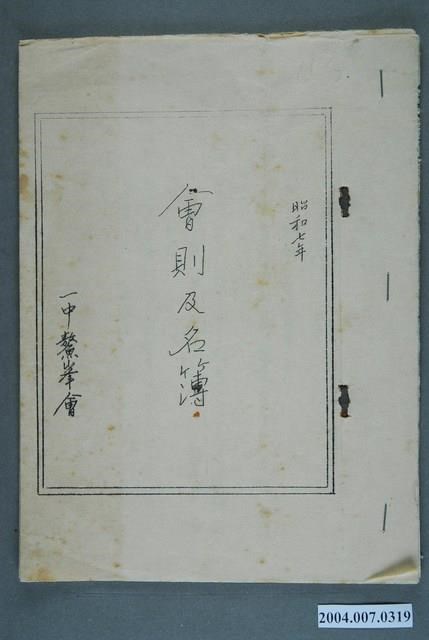 昭和七年
會則及名簿
一中鰲峯會
2004.007.0319